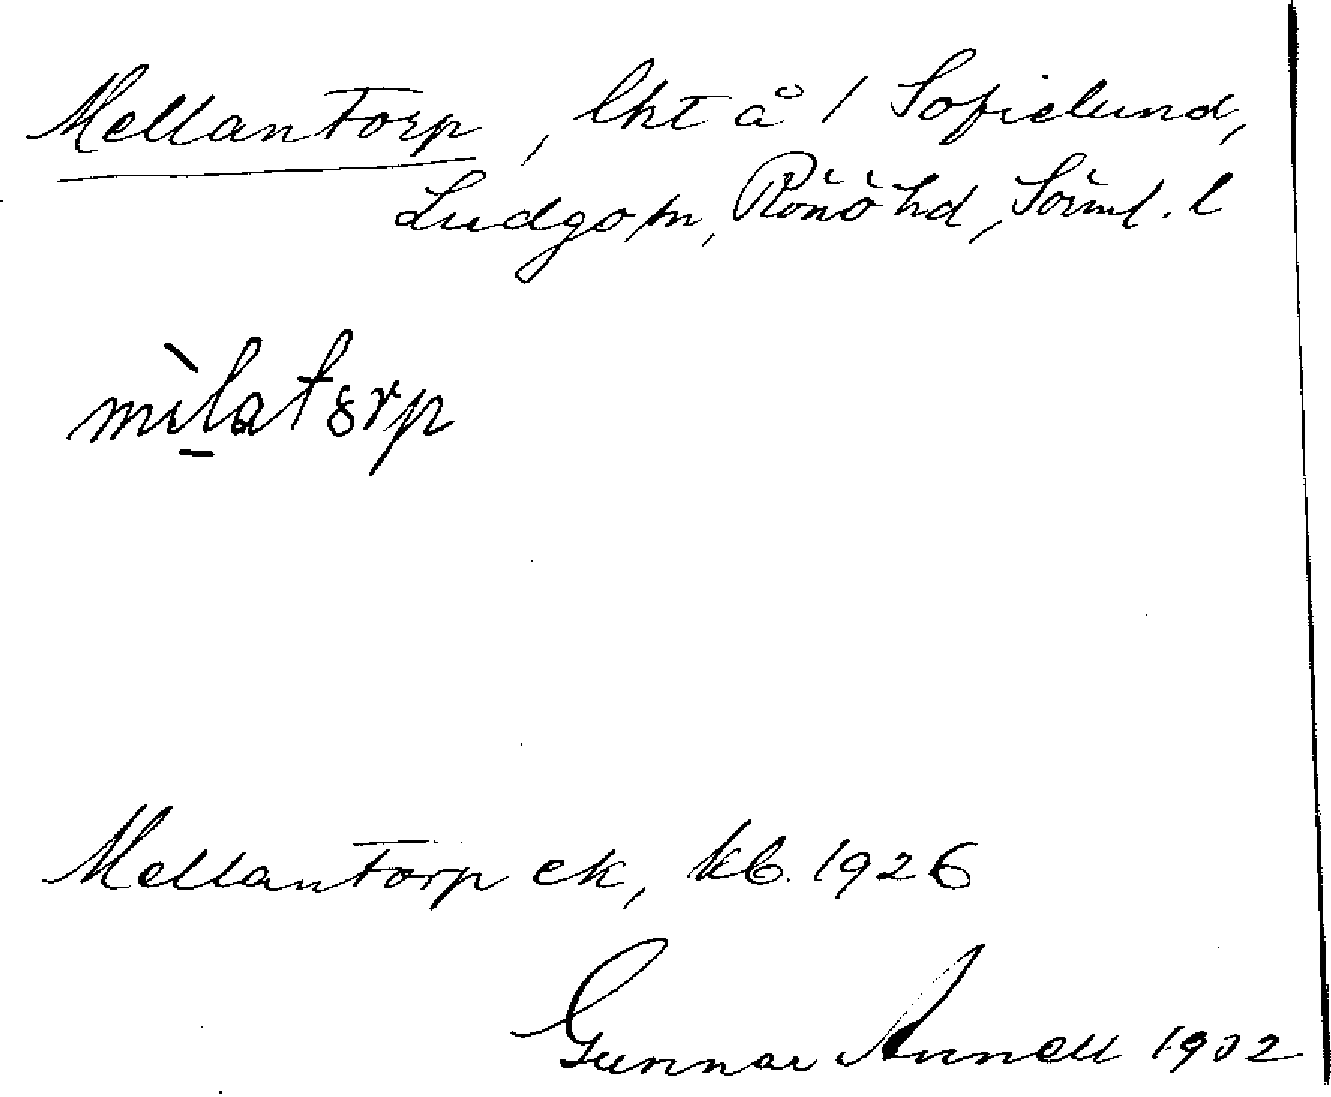 Mellantorp, lht å / Sofielund,
Ludgo sn, Rönö hd, Söml. l
mìlatorp
Mellantorp ek, kb. 1926
Gunnar Annell 1932